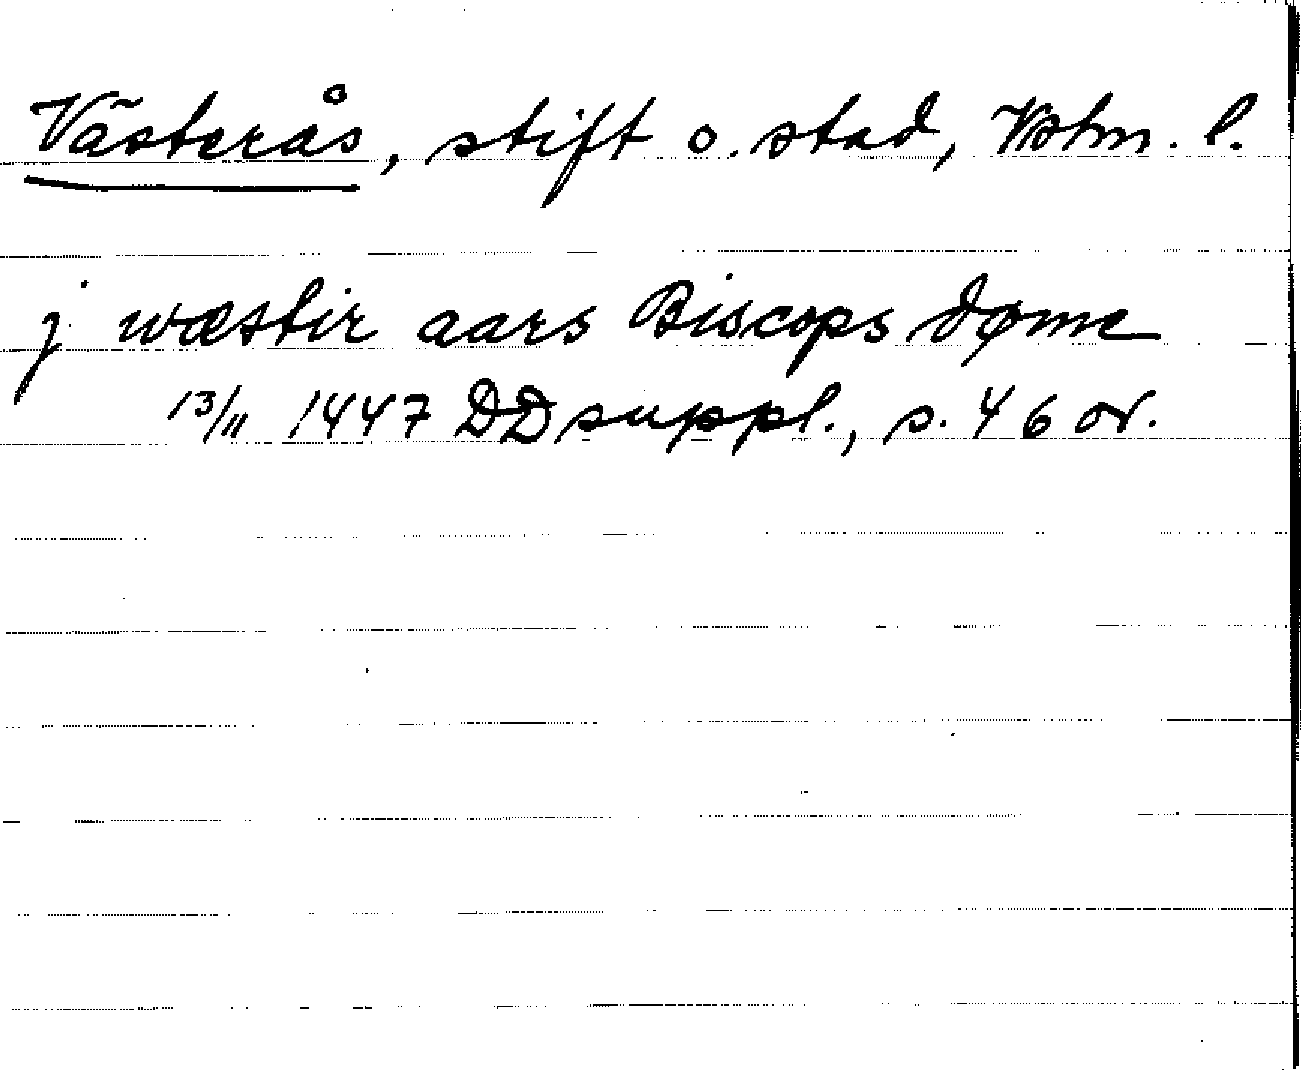 Västerås, stift o. stad, Vstm. l.
j wæstir aars Biscops døme
13/11 1447 DD suppl., s. 46 or.